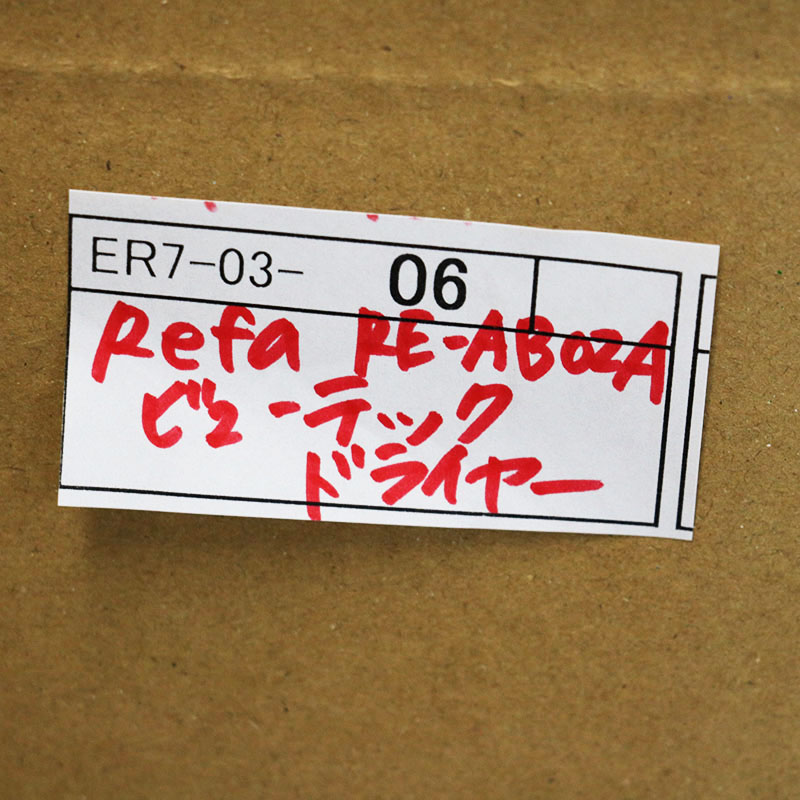 ER7-03- 06
Refa RE-AB02A
ビューテック
ドライヤー